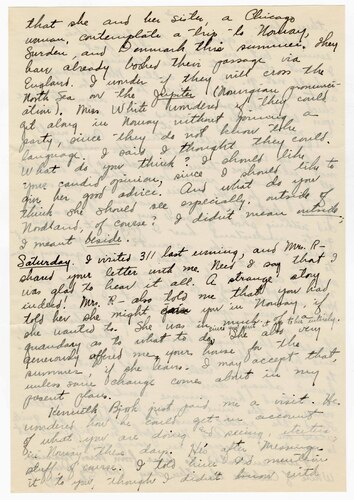 that she and her sister, a Chicago
woman, contemplate a trip to Norway,
Sweden, and Denmark this summer. They
have already booked their passage via
England. I wonder if they will cross the
North Sea on the Jupiter (Norwegian pronunci-
ation). Miss White wondered if they could
get along in Norway without joining a
party, since they do not know the
language. I said I thought they could.
What do you think? I should like
your candid opinion, since I should like to
give her good advice. And what do you
think she should see especially, outside of
Nordland, of course? I didn't mean outside,
I meant beside.
Saturday. I visited 311 last evening, and Mrs. R-
shared your letter with me. Need I say that I
was glad to hear it all. A strange story
indeed! Mrs. R- also told me that you had
told her she might you in Norway, if
she wanted to. She was in much of a
quandary as to what to do. She also very
generously offered me your house for the
summer, if she leaves. I may accept that
unless some change comes about in my
present plans.
Kenneth Bjork just paid me a visit. He
wondered how he could get an account
of what you are doing & seeing
in Norway these days. He's after Messenger
stuff of course. I told him I'd mention
it to you, thought I didn't know with